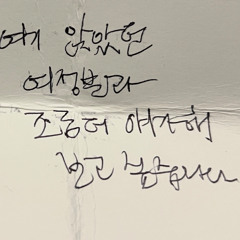 여기 앉았던
여성분과
조금더 얘기해
보고 싶습니다